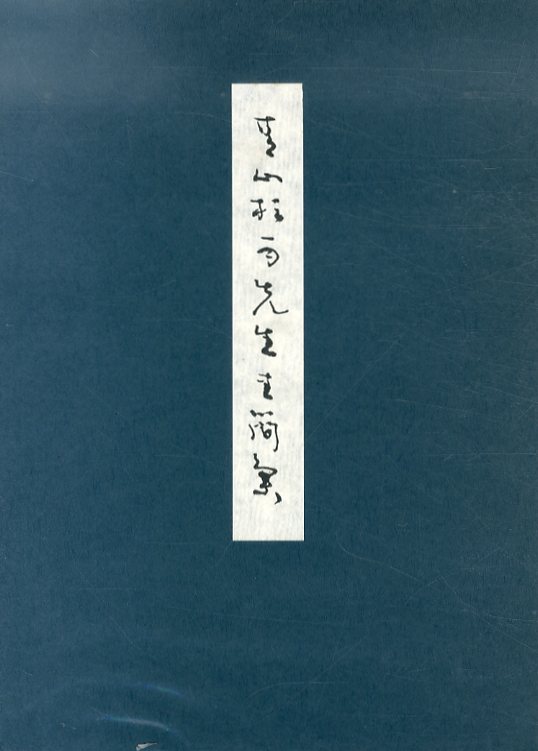 青山杉雨先生書簡集